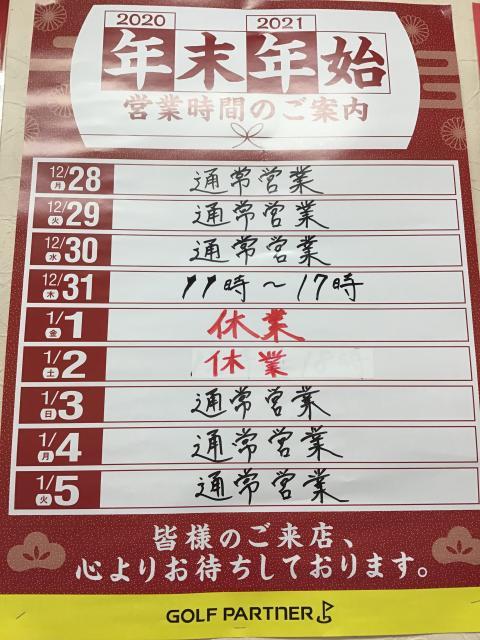 2020 2021
年末年始
営業時間のご案内
12/28 月 通常営業
12/29 火 通常営業
12/30 水 通常営業
12/31 木 11時～17時
1/1 金 休業
1/2 土 休業
1/3 日 通常営業
1/4 月 通常営業
1/5 火 通常営業
皆様のご来店、
心よりお待ちしております。
GOLF PARTNER